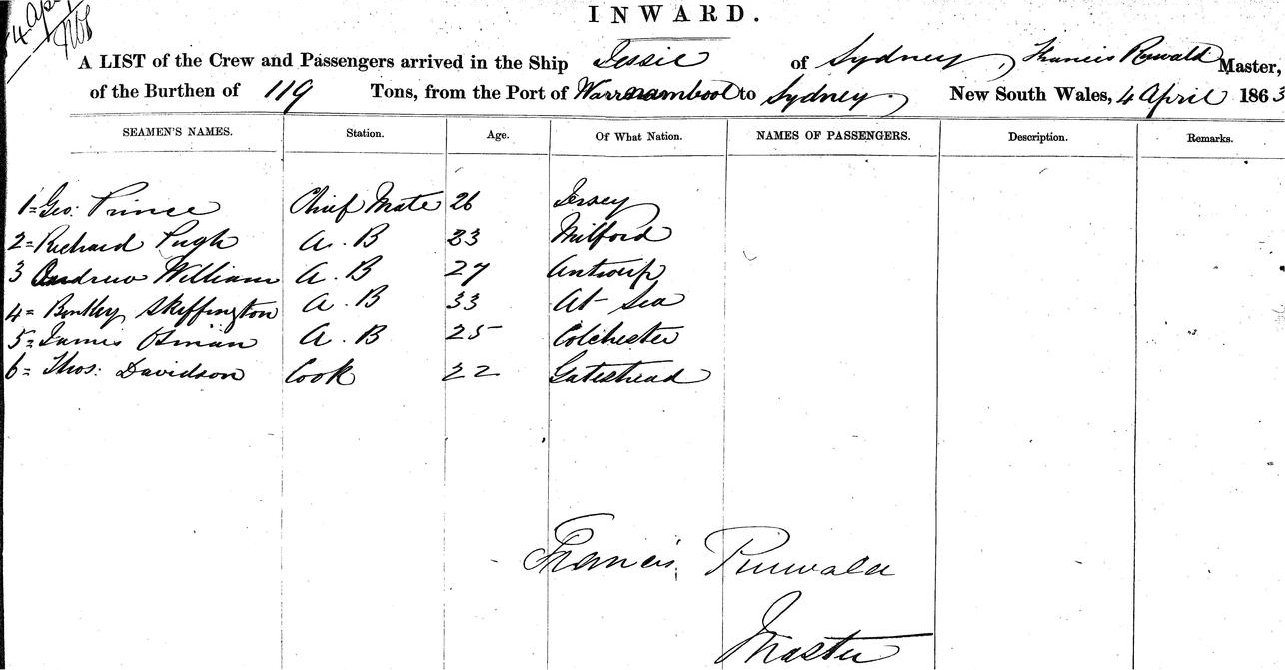 4 Apl
INWARD.
A LIST of the Crew and Passengers arrived in the Ship Jessie of Sydney, Francis Master,
of the Burthen of 119 Tons, from the Port of Warrnambool to Sydney. New South Wales, 4 April 1863
SEAMEN'S NAMES. Station. Age. Of What Nation. NAMES OF PASSENGERS. Description. Remarks.
1= Geo: Prince Chief Mate 26 Jersey
2= Richard Pugh A. B 23 Milford
3 Andrew William A. B 27 Antwerp
4= Skeffington A. B 33 At Sea
5= James Osman A. B 25 Colchester
6= Thos: Davidson Cook 22 Gateshead
Francis
Master